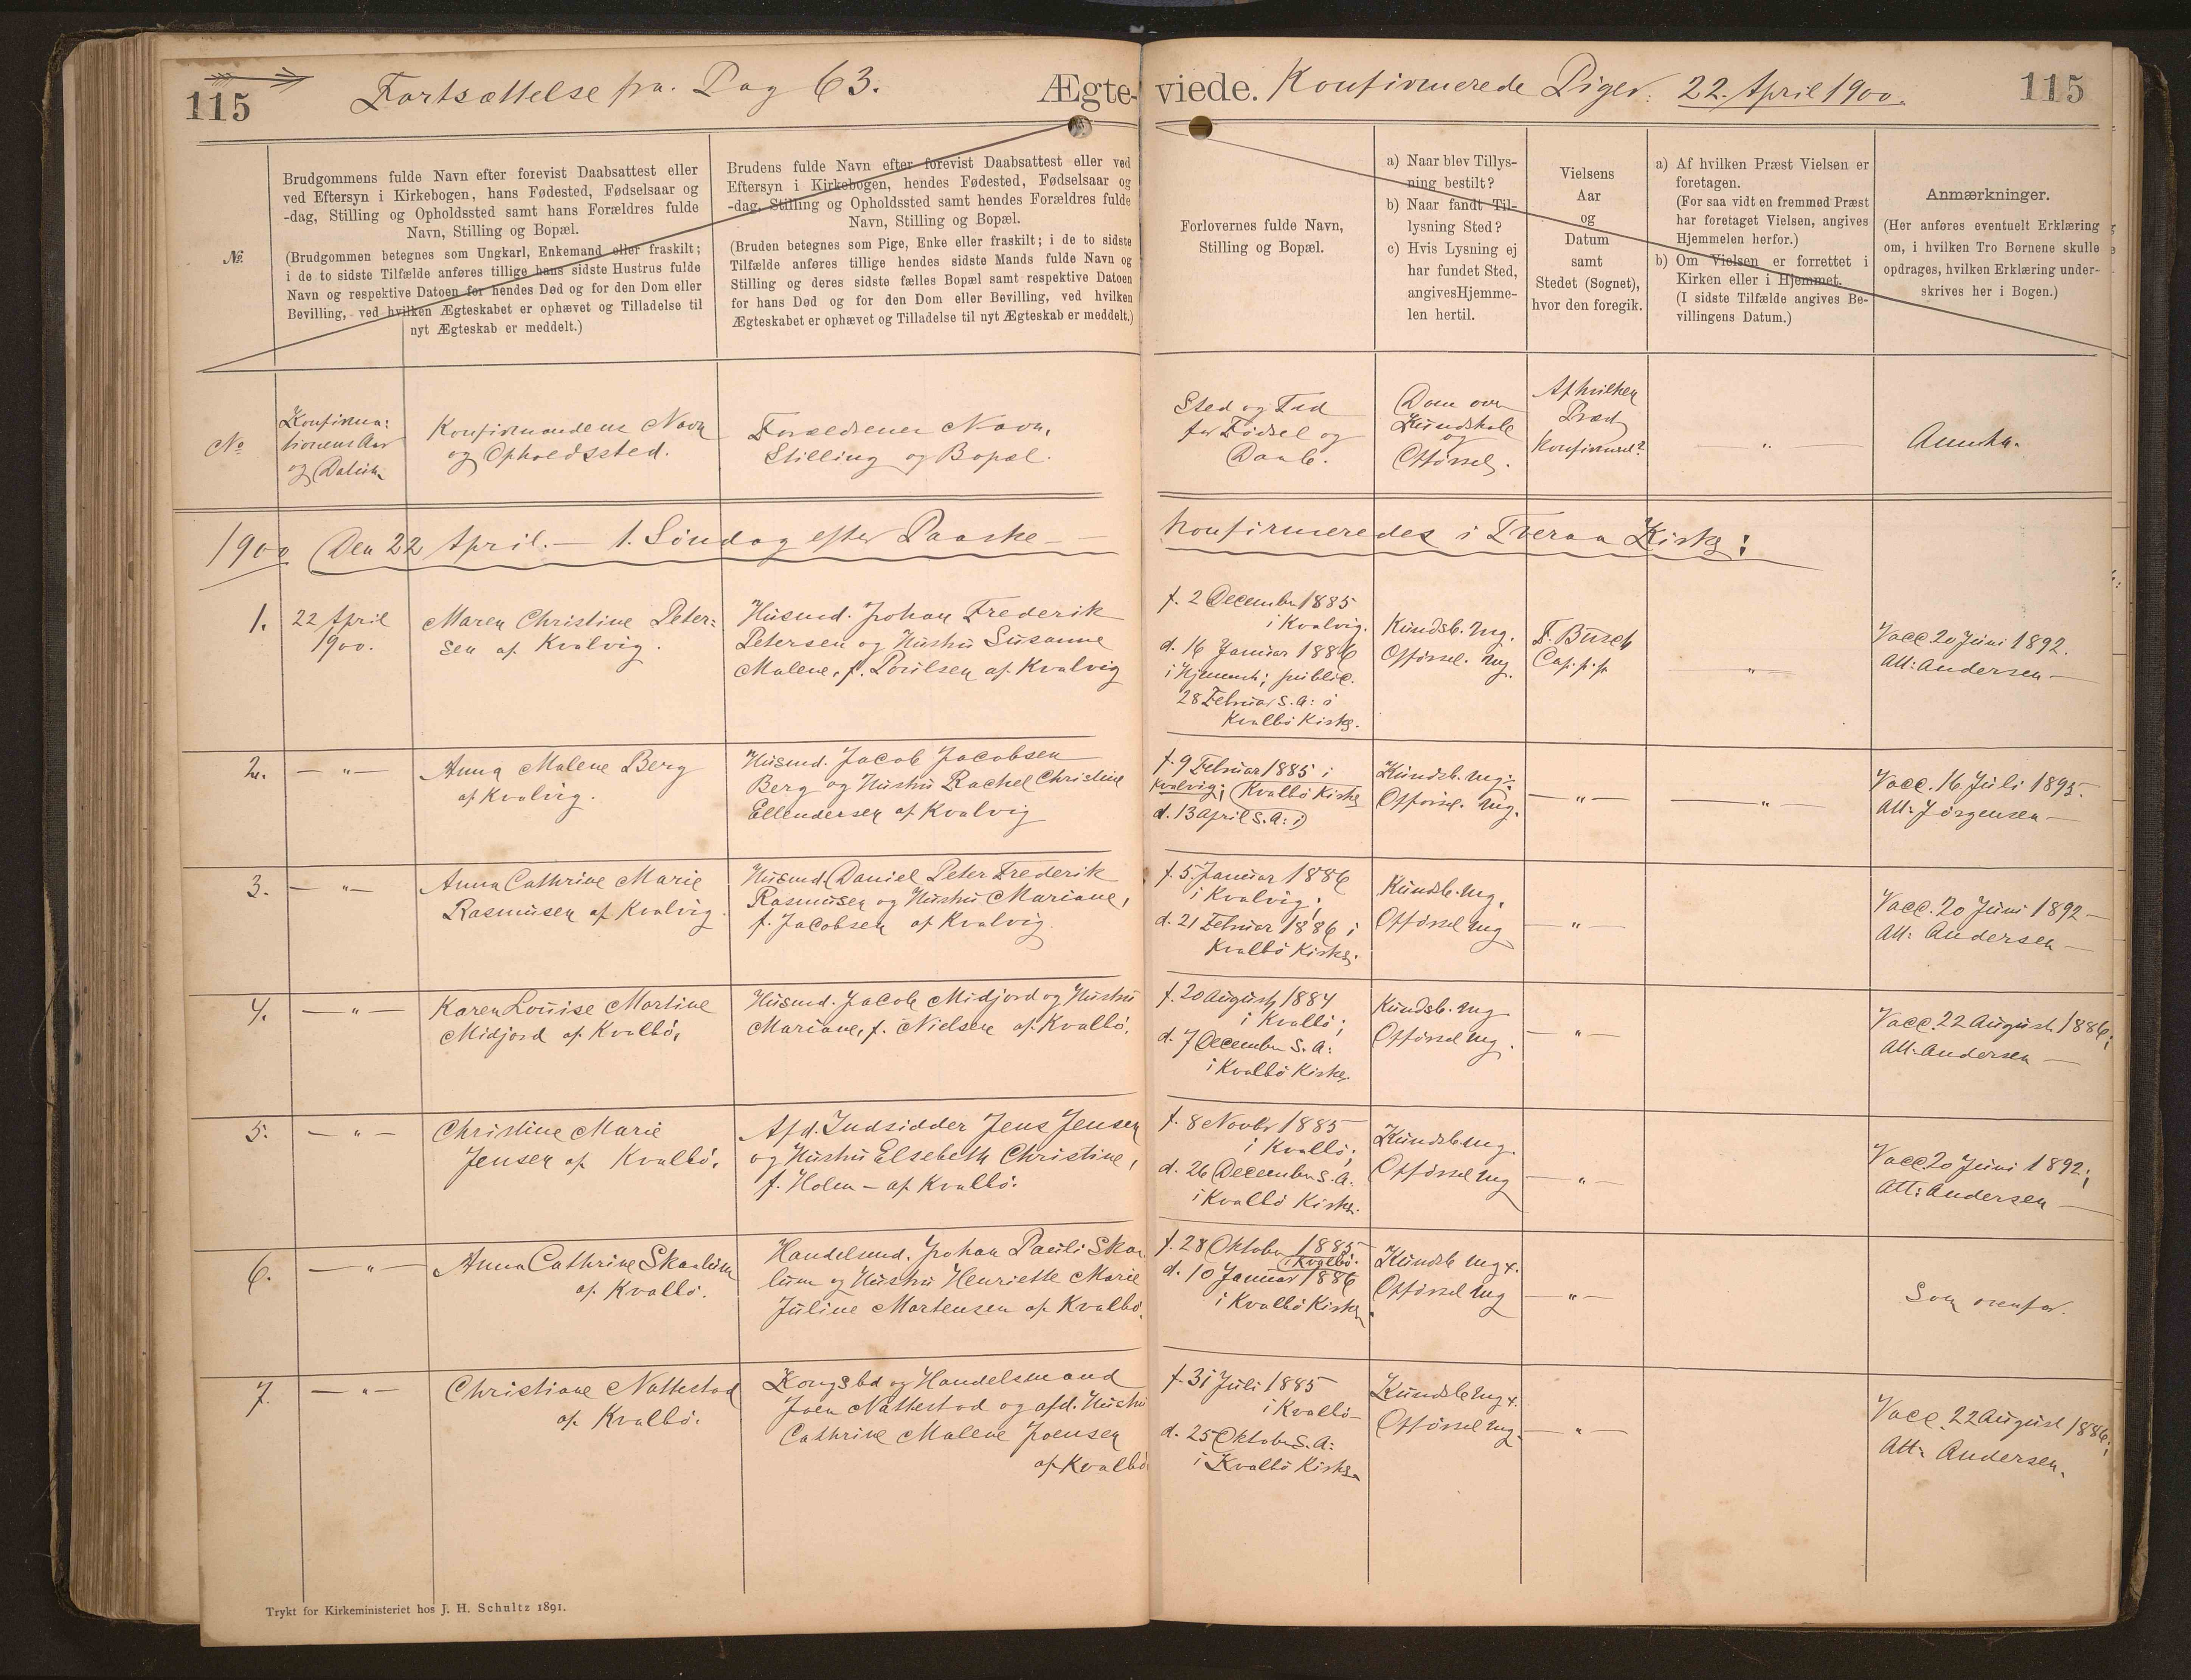 115
Fortsættelse fra Pag 63.
Ægte-
viede. Konfirmerede Piger. 22. April 1900.
115
№
Brudgommens fulde Navn efter forevist Daabsattest eller
ved Eftersyn i Kirkebogen, hans Fødested, Fødselsaar og
-dag, Stilling og Opholdssted samt hans Forældres fulde
Navn, Stilling og Bopæl.
(Brudgommen betegnes som Ungkarl, Enkemand eller fraskilt;
i de to sidste Tilfælde anføres tillige hans sidste Hustrus fulde
Navn og respektive Datoen for hendes Død og for den Dom eller
Bevilling, ved hvilken Ægteskabet er ophævet og Tilladelse til
nyt Ægteskab er meddelt.)
Brudens fulde Navn efter forevist Daabsattest eller ved
Eftersyn i Kirkebogen, hendes Fødested, Fødselsaar og
-dag, Stilling og Opholdssted samt hendes Forældres fulde
Navn, Stilling og Bopæl.
(Bruden betegnes som Pige, Enke eller fraskilt; i de to sidste
Tilfælde anføres tillige hendes sidste Mands fulde Navn og
Stilling og deres sidste fælles Bopæl samt respektive Datoen
for hans Død og for den Dom eller Bevilling, ved hvilken
Ægteskabet er ophævet og Tilladelse til nyt Ægteskab er meddelt.)
Forlovernes fulde Navn,
Stilling og Bopæl.
a) Naar blev Tillys-
ning bestilt?
b) Naar fandt Til-
lysning Sted?
c) Hvis Lysning ej
har fundet Sted,
angivesHjemme-
len hertil.
Vielsens
Aar
og
Datum
samt
Stedet (Sognet),
hvor den foregik.
a) Af hvilken Præst Vielsen er
foretagen.
(For saa vidt en fremmed Præst
har foretaget Vielsen, angives
Hjemmelen herfor.)
b) Om Vielsen er forrettet i
Kirken eller i Hjemmet.
(I sidste Tilfælde angives Be-
villingens Datum.)
Anmærkninger.
(Her anføres eventuelt Erklæring
om, i hvilken Tro Børnene skulle
opdrages, hvilken Erklæring under-
skrives her i Bogen.)
No
Konfirma:
tionens Aar
og Datum
Konfirmandens Navn
og Opholdssted.
Forældrenes Navn,
Stilling og Bopæl.
Sted og Tid
for Fødsel og
Daab.
Dom over
Kundskab
og
Opførsel.
Af hvilken
Præst
konfirmeret?
— " —
Anmkn.
1900 Den 22 April. — 1. Söndag efter Paaske —
konfirmeredes i Tveraa Kirke:
1. 22 April
1900.
Maren Christine Peter=
sen af Kvalvig.
Husmd. Johan Frederik
Petersen og Hustru Susanne
Malene, f. Poulsen af Kvalvig
f. 2 December 1885
i Kvalvig.
d. 16 Januar 1886
i Hjemmet; public.
28 Februar S. A: i
Kvalbö Kirke.
Kundsk. mg.
Opførsel. mg.
F. Busch
Cap. p. p.
— " —
Vacc. 20 Juni 1892.
Att: Andersen —
2. — " —
Anna Malene Berg
af Kvalvig.
Husmd. Jacob Jacobsen
Berg og Hustru Rachel Christine
Ellendersen af Kvalvig
f. 9 Februar 1885 i
Kvalvig; (Kvalbö Kirke
d. 13 April S. A: i)
Kundsk. mg:
Opførsel. mg.
— " —
— " —
Vacc. 16 Juli 1895.
Att: Jörgensen —
3. — " —
Anna Cathrine Marie
Rasmusen af Kvalvig.
Husmd. Daniel Peter Frederik
Rasmusen og Hustru Mariane,
f. Jacobsen af Kvalvig.
f. 5. Januar 1886
i Kvalvig;
d. 21 Februar 1886 i
Kvalbö Kirke.
Kundsk. mg.
Opførsel mg
— " —
Vacc. 20 Juni 1892 —
Att: Andersen —
4. — " —
Karen Louise Martine
Midjord af Kvalbö,
Husmd. Jacob Midjord og Hustru
Mariane, f. Nielsen af Kvalbö.
f. 20 August 1884
i Kvalbö;
d. 7 December S. A:
i Kvalbö Kirke.
Kundsk. mg
Opførsel mg.
— " —
Vacc. 22 August 1886;
Att: Andersen —
5. — " —
Christine Marie
Jensen af Kvalbö.
Afd. Indsidder Jens Jensen
og Hustru Elsebeth Christine,
f. Holm — af Kvalbö.
f. 8 Novbr 1885
i Kvalbö;
d. 26 December S. A.
i Kvalbö Kirke.
Kundsk. mg
Opførsel mg
— " —
Vacc. 20 Juni 1892;
Att: Andersen —
6. — " —
Anna Cathrine Skaalum
af Kvalbö.
Handelsmd. Johan Pauli Skaa-
lum og Hustru Henriette Marie
Juline Mortensen af Kvalbö.
f. 28 Oktober 1885
i Kvalbö.
d. 10 Januar 1886
i Kvalbö Kirke
Kundsk mg x.
Opførsel mg
— " —
Som ovenfor.
7. — " —
Christiane Nattestad
af Kvalbö.
Kongsbd og Handelsmand
Joen Nattestad og afd. Hustru
Cathrine Malene Joensen
af Kvalbö
f. 31 Juli 1885
i Kvalbö —
d. 25 Oktober S. A:
i Kvalbö Kirke
Kundsk mg x.
Opførsel mg.
— " —
Vacc. 22 August 1886;
Att: Andersen.
Trykt for Kirkeministeriet hos J. H. Schultz 1891.